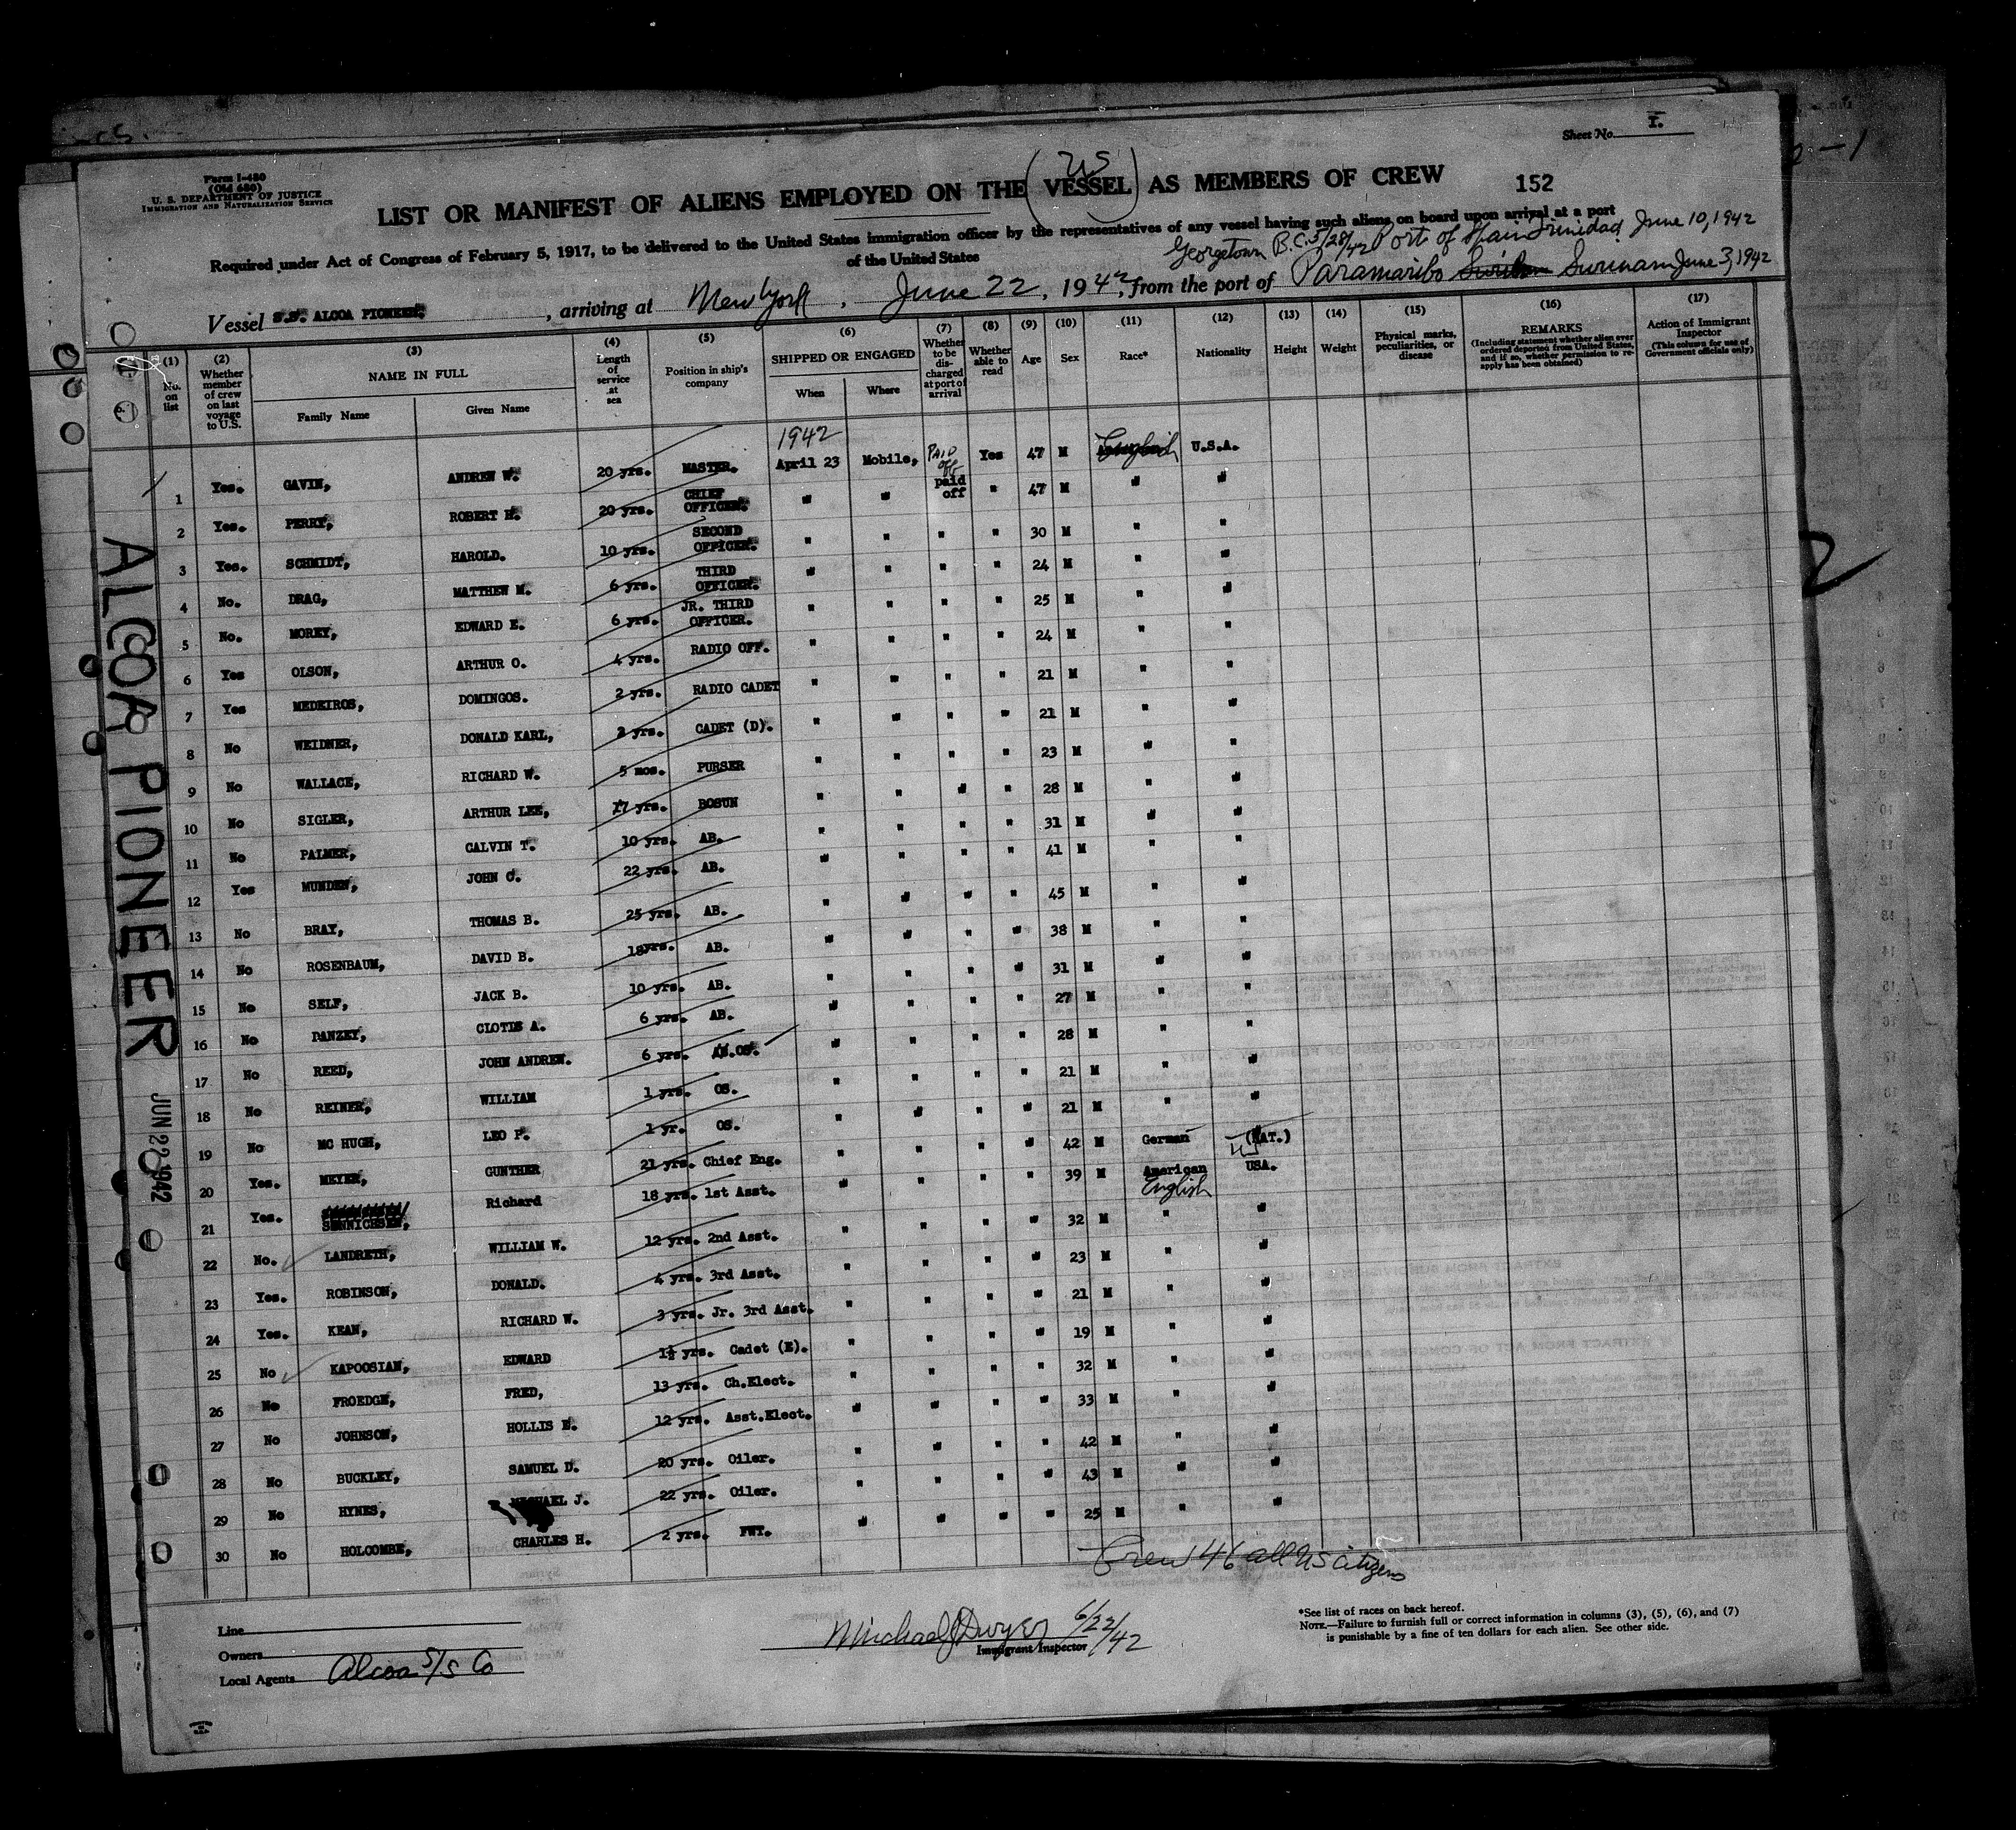 Sheet No. I.
Form I-480
(Old 680)
U. S. DEPARTMENT OF JUSTICE
IMMIGRATION AND NATURALIZATION SERVICE
LIST OR MANIFEST OF ALIENS EMPLOYED ON THE (US VESSEL) AS MEMBERS OF CREW 152
Required under Act of Congress of February 5, 1917, to be delivered to the United States immigration officer by the representatives of any vessel having such aliens on board upon arrival at a port
of the United States
Georgetown B.G. 5/28/42 Port of Spain Trinidad June 10, 1942
Vessel S.S. ALCOA PIONEER, arriving at New York, June 22, 1942, from the port of Paramaribo Surinam June 3, 1942
(1) No. on list
(2) Whether member of crew on last voyage to U.S.
(3) NAME IN FULL
Family Name Given Name
(4) Length of service at sea
(5) Position in ship's company
(6) SHIPPED OR ENGAGED
When Where
(7) Whether to be discharged at port of arrival
(8) Whether able to read
(9) Age
(10) Sex
(11) Race*
(12) Nationality
(13) Height
(14) Weight
(15) Physical marks, peculiarities, or disease
(16) REMARKS
(Including statement whether alien ever ordered deported from United States, and if so, whether permission to reapply has been obtained)
(17) Action of Immigrant Inspector
(This column for use of Government officials only)
1942
1 Yes. GAVIN, ANDREW W. 20 yrs. MASTER. April 23 Mobile, PAID off Yes 47 M English U.S.A.
2 Yes. PERRY, ROBERT H. 20 yrs. CHIEF OFFICER. " " paid off " 47 M " "
3 Yes. SCHMIDT, HAROLD. 10 yrs. SECOND OFFICER. " " " " 30 M " "
4 No. DRAG, MATTHEW M. 6 yrs. THIRD OFFICER. " " " " 24 M " "
5 No. MOREY, EDWARD E. 6 yrs. JR. THIRD OFFICER. " " " " 25 M " "
6 Yes OLSON, ARTHUR O. 4 yrs. RADIO OFF. " " " " 24 M " "
7 Yes MEDEIROS, DOMINGOS. 2 yrs. RADIO CADET " " " " 21 M " "
8 No WEIDNER, DONALD KARL, 2 yrs. CADET (D). " " " " 21 M " "
9 No WALLACE, RICHARD W. 5 mos. PURSER " " " " 23 M " "
10 No SIGLER, ARTHUR LEE, 17 yrs. BOSUN " " " " 28 M " "
11 No PALMER, CALVIN T. 10 yrs. AB. " " " " 31 M " "
12 Yes MUNDEN, JOHN C. 22 yrs. AB. " " " " 41 M " "
13 No BRAY, THOMAS B. 25 yrs. AB. " " " " 45 M " "
14 No ROSENBAUM, DAVID B. 18yrs. AB. " " " " 38 M " "
15 No SELF, JACK B. 10 yrs. AB. " " " " 31 M " "
16 No DANZEY, CLOTIS A. 6 yrs. AB. " " " " 27 M " "
17 No REED, JOHN ANDREW. 6 yrs. OS. " " " " 28 M " "
18 No REINER, WILLIAM 1 yrs. OS. " " " " 21 M " "
19 No MC HUGH, LEO P. 1 yr. OS. " " " " 21 M " "
20 Yes. MEYER, GUNTHER 21 yrs. Chief Eng. " " " " 42 M German US (NAT.)
21 Yes. SENNICHSEN, Richard 18 yrs. 1st Asst. " " " " 39 M American English USA.
22 No. LANDRETH, WILLIAM W. 12 yrs. 2nd Asst. " " " " 32 M " "
23 Yes. ROBINSON, DONALD. 4 yrs. 3rd Asst. " " " " 23 M " "
24 Yes. KEAN, RICHARD W. 3 yrs. Jr. 3rd Asst. " " " " 21 M " "
25 No KAPOOSIAN, EDWARD 1½ yrs. Cadet (E). " " " " 19 M " "
26 No FROEDGE, FRED, 13 yrs. Ch.Elect. " " " " 32 M " "
27 No JOHNSON, HOLLIS E. 12 yrs. Asst.Elect. " " " " 33 M " "
28 No BUCKLEY, SAMUEL D. 20 yrs. Oiler. " " " " 42 M " "
29 No HYNES, MICHAEL J. 22 yrs. Oiler. " " " " 43 M " "
30 No HOLCOMBE, CHARLES H. 2 yrs. FWT. " " " " 25 M " "
Crew 46 all US citizens
Line
Owners
Local Agents Alcoa S/S Co
Michael J Dwyer 6/22/42
Immigrant Inspector
*See list of races on back hereof.
NOTE.—Failure to furnish full or correct information in columns (3), (5), (6), and (7)
is punishable by a fine of ten dollars for each alien. See other side.
ALCOA PIONEER
JUN 22 1942